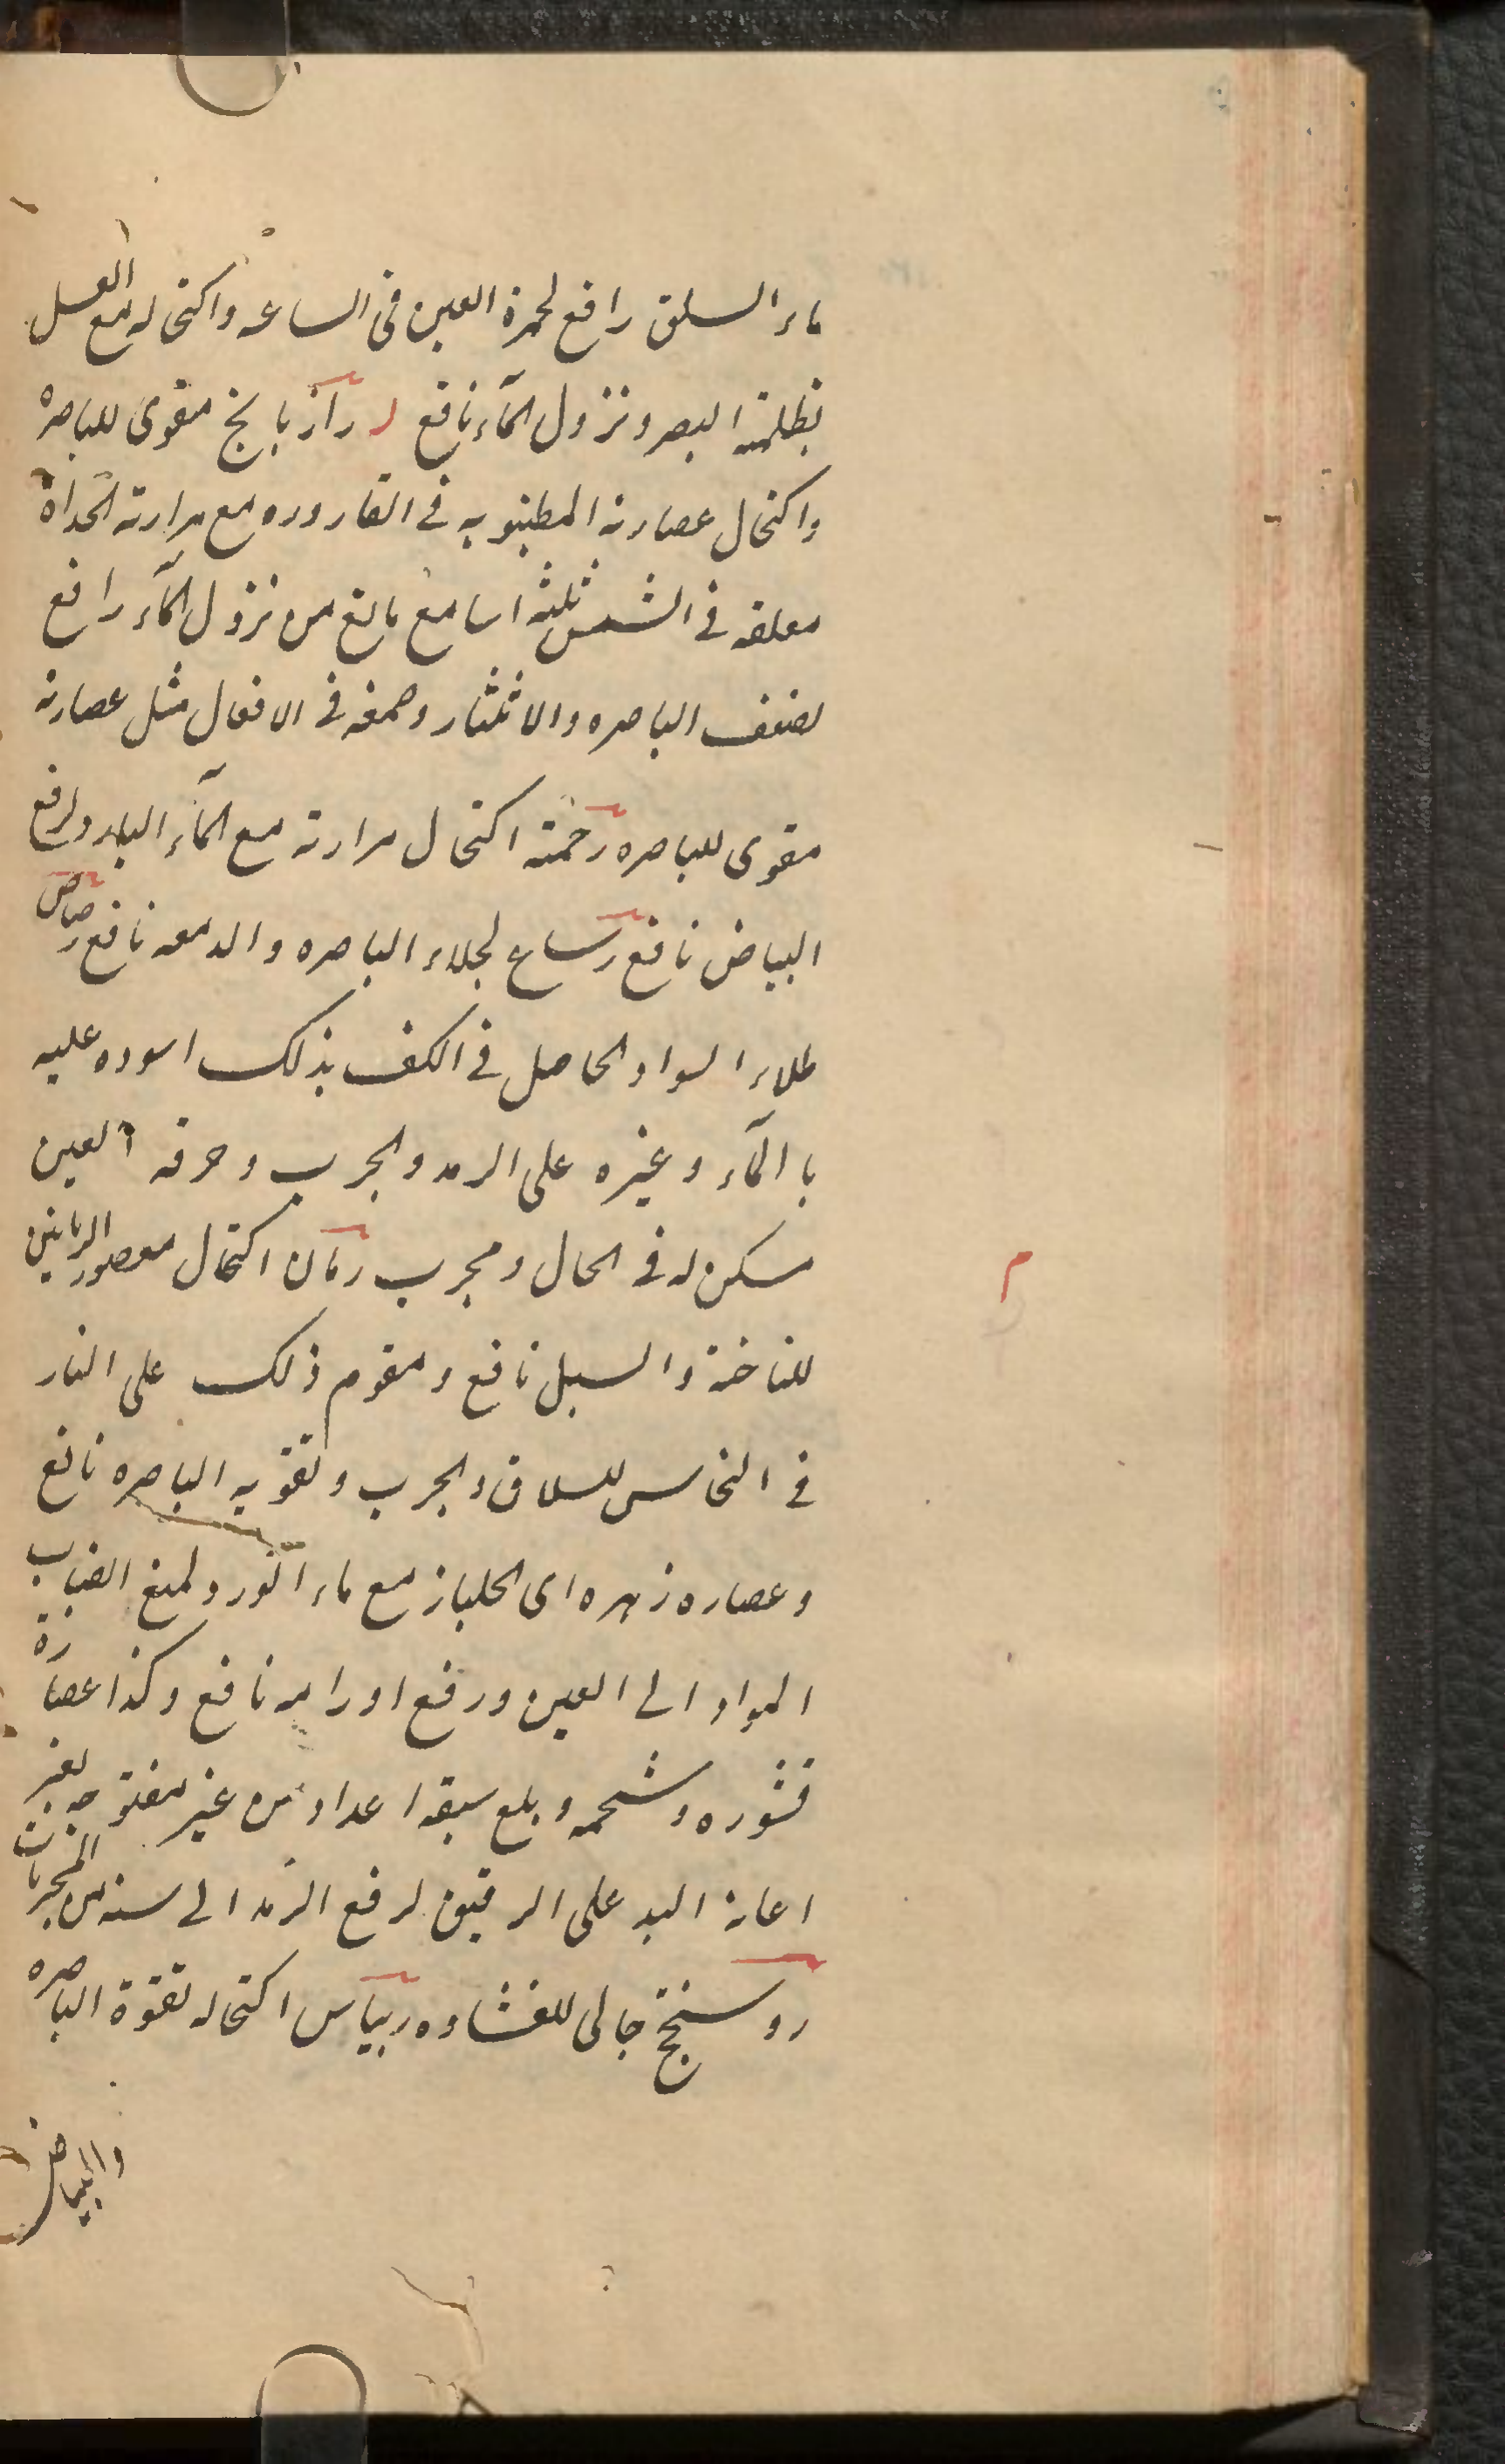 ماء السلق رافع لحمرة العين فى الساعه واكتحاله مع العسل
لظلمة البصر ونزول المآء نافع ر رازيانج مقوى للباصره
واكتحال عصارته المطبوبه فى القاروره مع مرارته الحداة
معلقه فى الشمس ثلثه اسابيع مانع من نزول المآء رافع
لضعف الباصره والانتشار وصمغه فى الافعال مثل عصارته
مقوى للباصره رخمة اكتحال مرارته مع المآء البارد ولرفع
البياض نافع رساع لجلاء الباصره والدمعه نافع رصاص
طلاء السواد الحاصل فى الكف بذلك اسوده عليه
با المآء وغيره على الرمد والجرب وحرقه العين
مسكن له فى الحال ومجرب رمان اكتحال معصور الرمانين
للناخنة والسبل نافع ومقوم ذلك على النار
فى النحاس للسلاق والجرب وتقويه الباصره نافع
وعصاره زهره اى الجلنار مع ماء الورد ولمنع انصباب
المواد الى العين ورفع اورامه نافع وكذا عصارة
قشوره وشحمه وبلع سبعة اعداد من غير مفتوحه بغير
اعانة اليد على الريق لرفع الرمد الى سنه من المجربات
روسختج جالى للغشاوه ريباس اكتحاله لقوة الباصره
والبياض
م